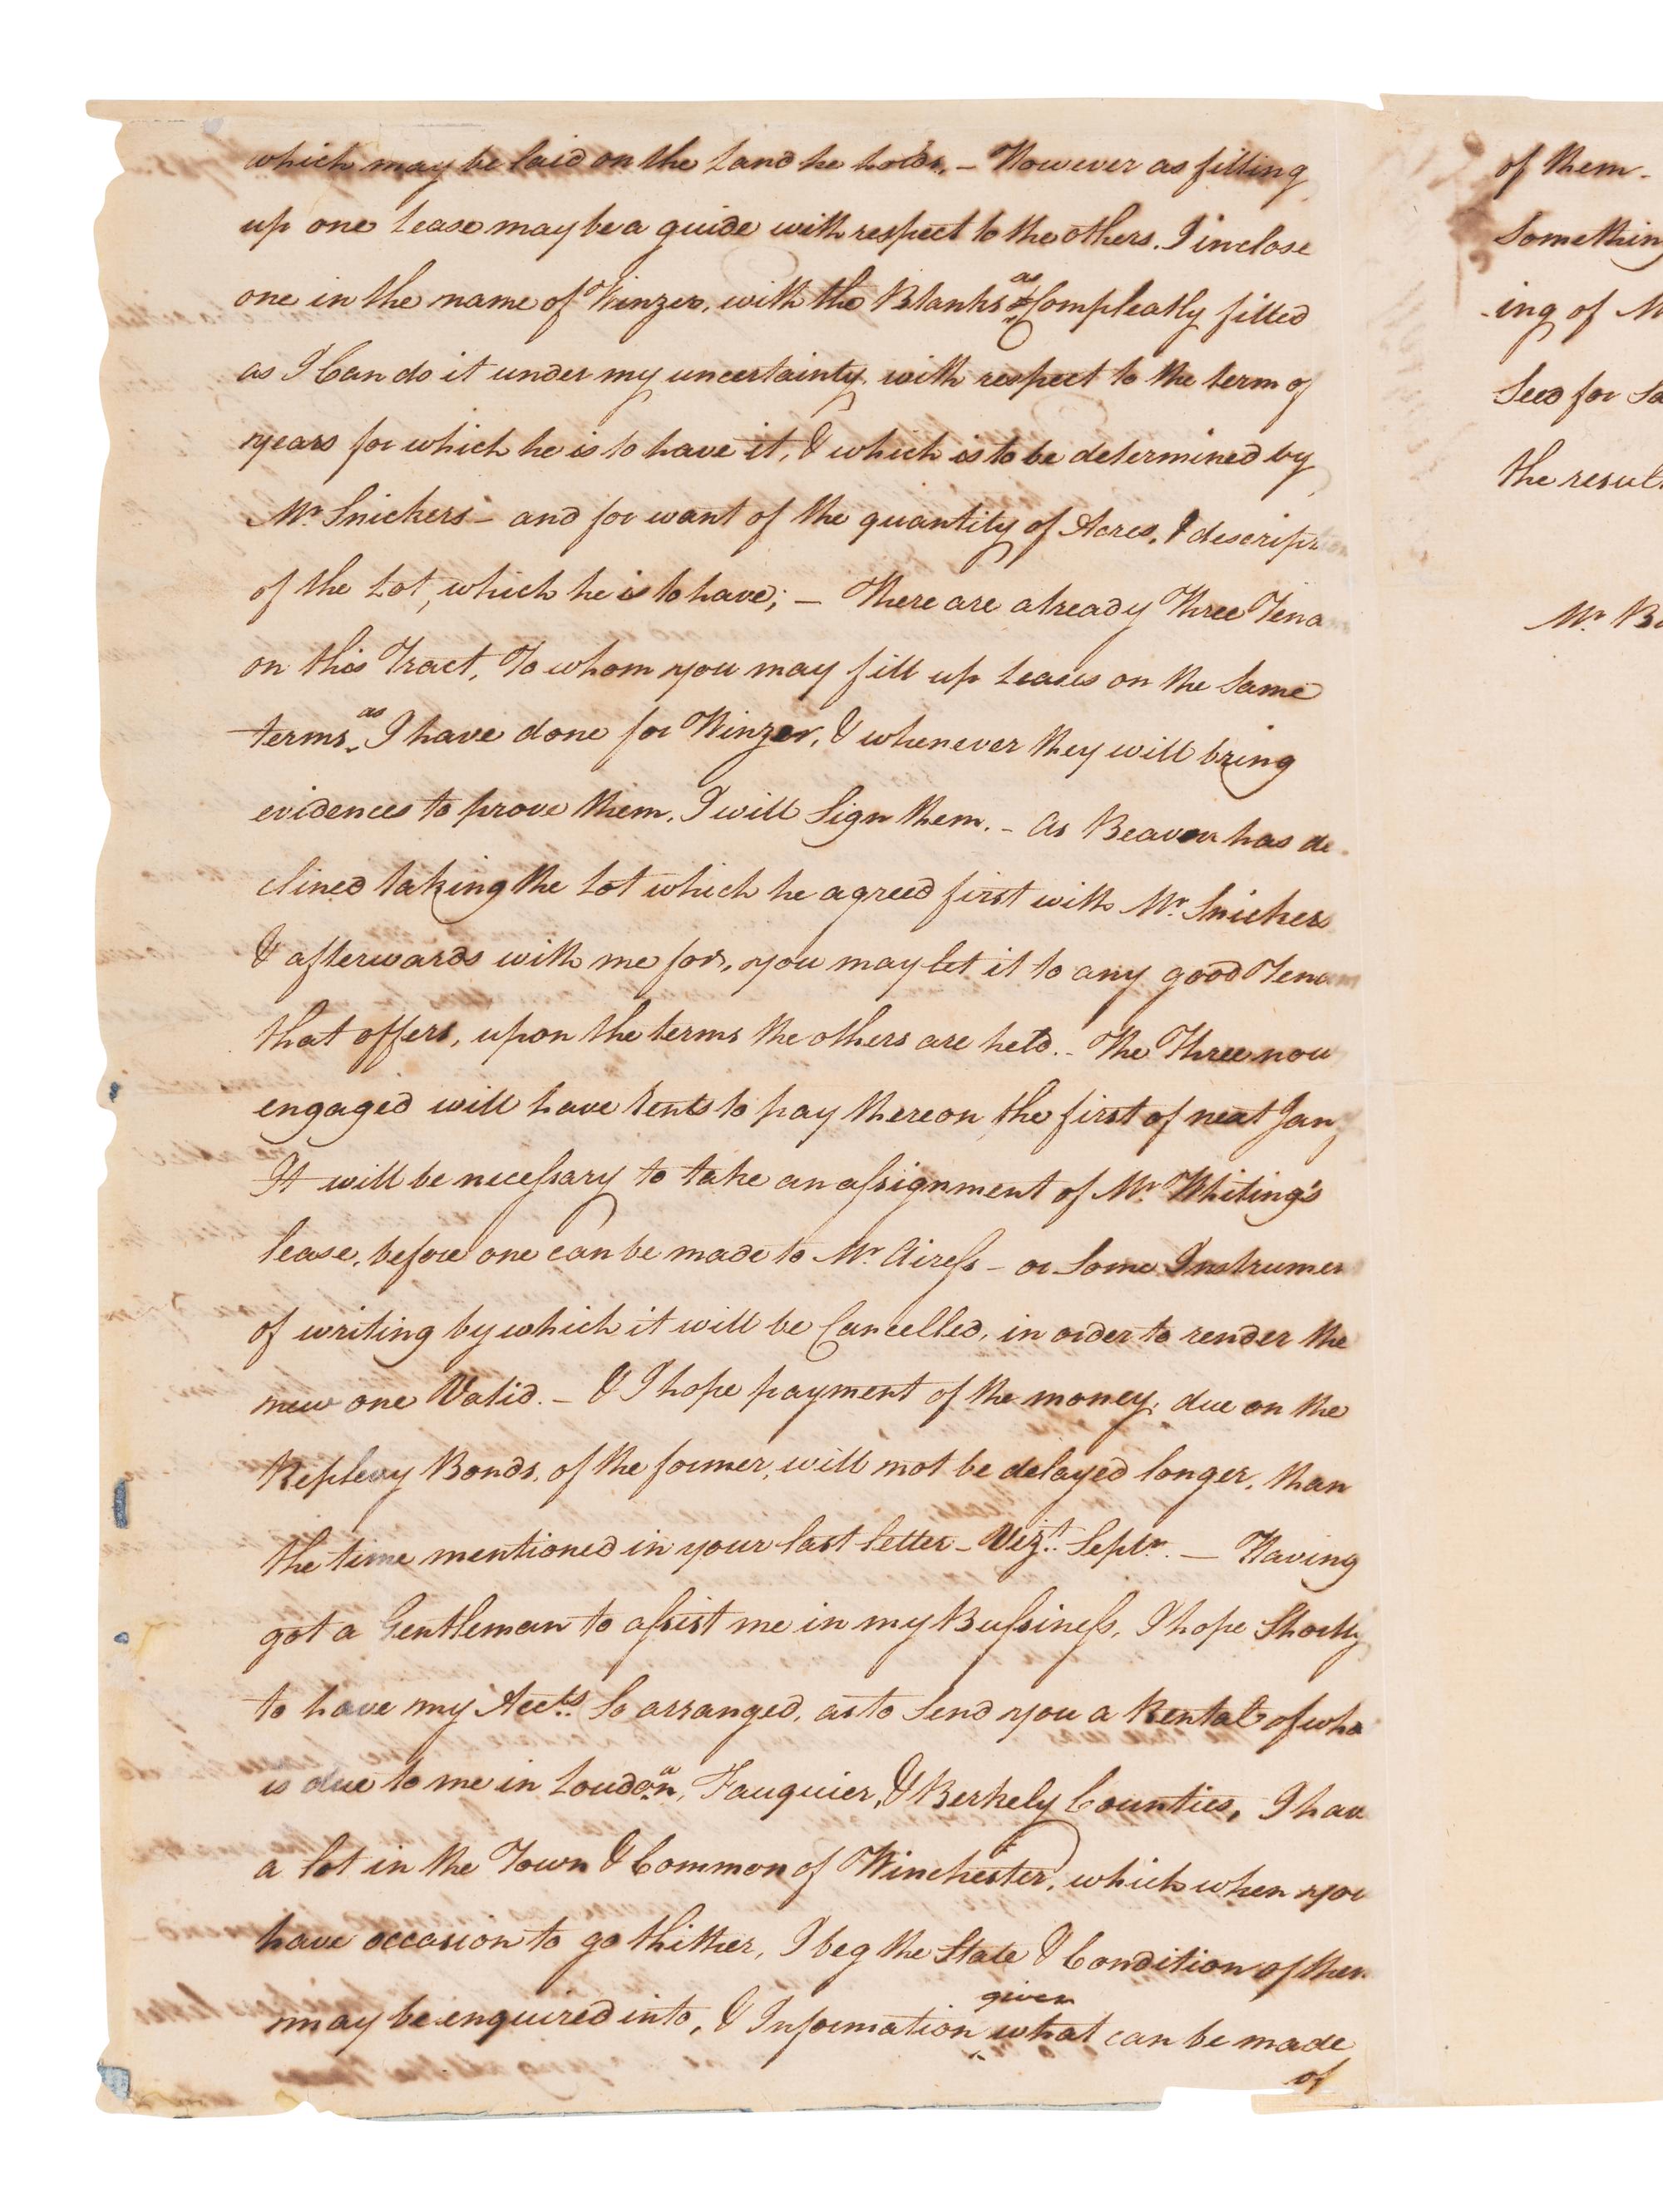 which may be laid on the Land he holds. – However as filling
up one Lease may be a guide with respect to the others. I inclose
one in the name of Winzer, with the Blanks as Compleatly filled
as I Can do it under my uncertainty, with respect to the term of
years for which he is to have it, & which is to be determined by
Mr. Snickers – and for want of the quantity of Acres, & descript
of the Lot, which he is to have; – There are already Three Tena
on this Tract, To whom you may fill up Leases on the Same
terms as I have done for Winzer, & whenever they will bring
evidences to prove them, I will Sign them. – As Beavour has de-
clined taking the Lot which he agreed first with Mr. Snickers
& afterwards with me for, you may let it to any good Tenan
that offers, upon the terms the others are held. – The Three now
engaged will have Rents to pay thereon the first of next Jany
It will be necessary to take an assignment of Mr. Whiting's
lease, before one can be made to Mr. Airess – or Some Instrumen
of writing by which it will be Cancelled, in order to render the
new one Valid. – & I hope payment of the money, due on the
Replevy Bonds, of the former, will not be delayed longer, than
the time mentioned in your last letter – Vizt. Septr. – Having
got a Gentleman to assist me in my Bussiness, I hope Shortly
to have my Accts. So arranged, as to Send you a Rental of wha
is due to me in Loudoun, Fauquier, & Berkely Counties, I hav
a lot in the Town & Common of Winchester, which when you
have occasion to go thither, I beg the State & Condition of them
may be enquired into, & Information given what can be made
of
of them –
Somethin
-ing of M
Seed for Sa
the resul
Mr. B